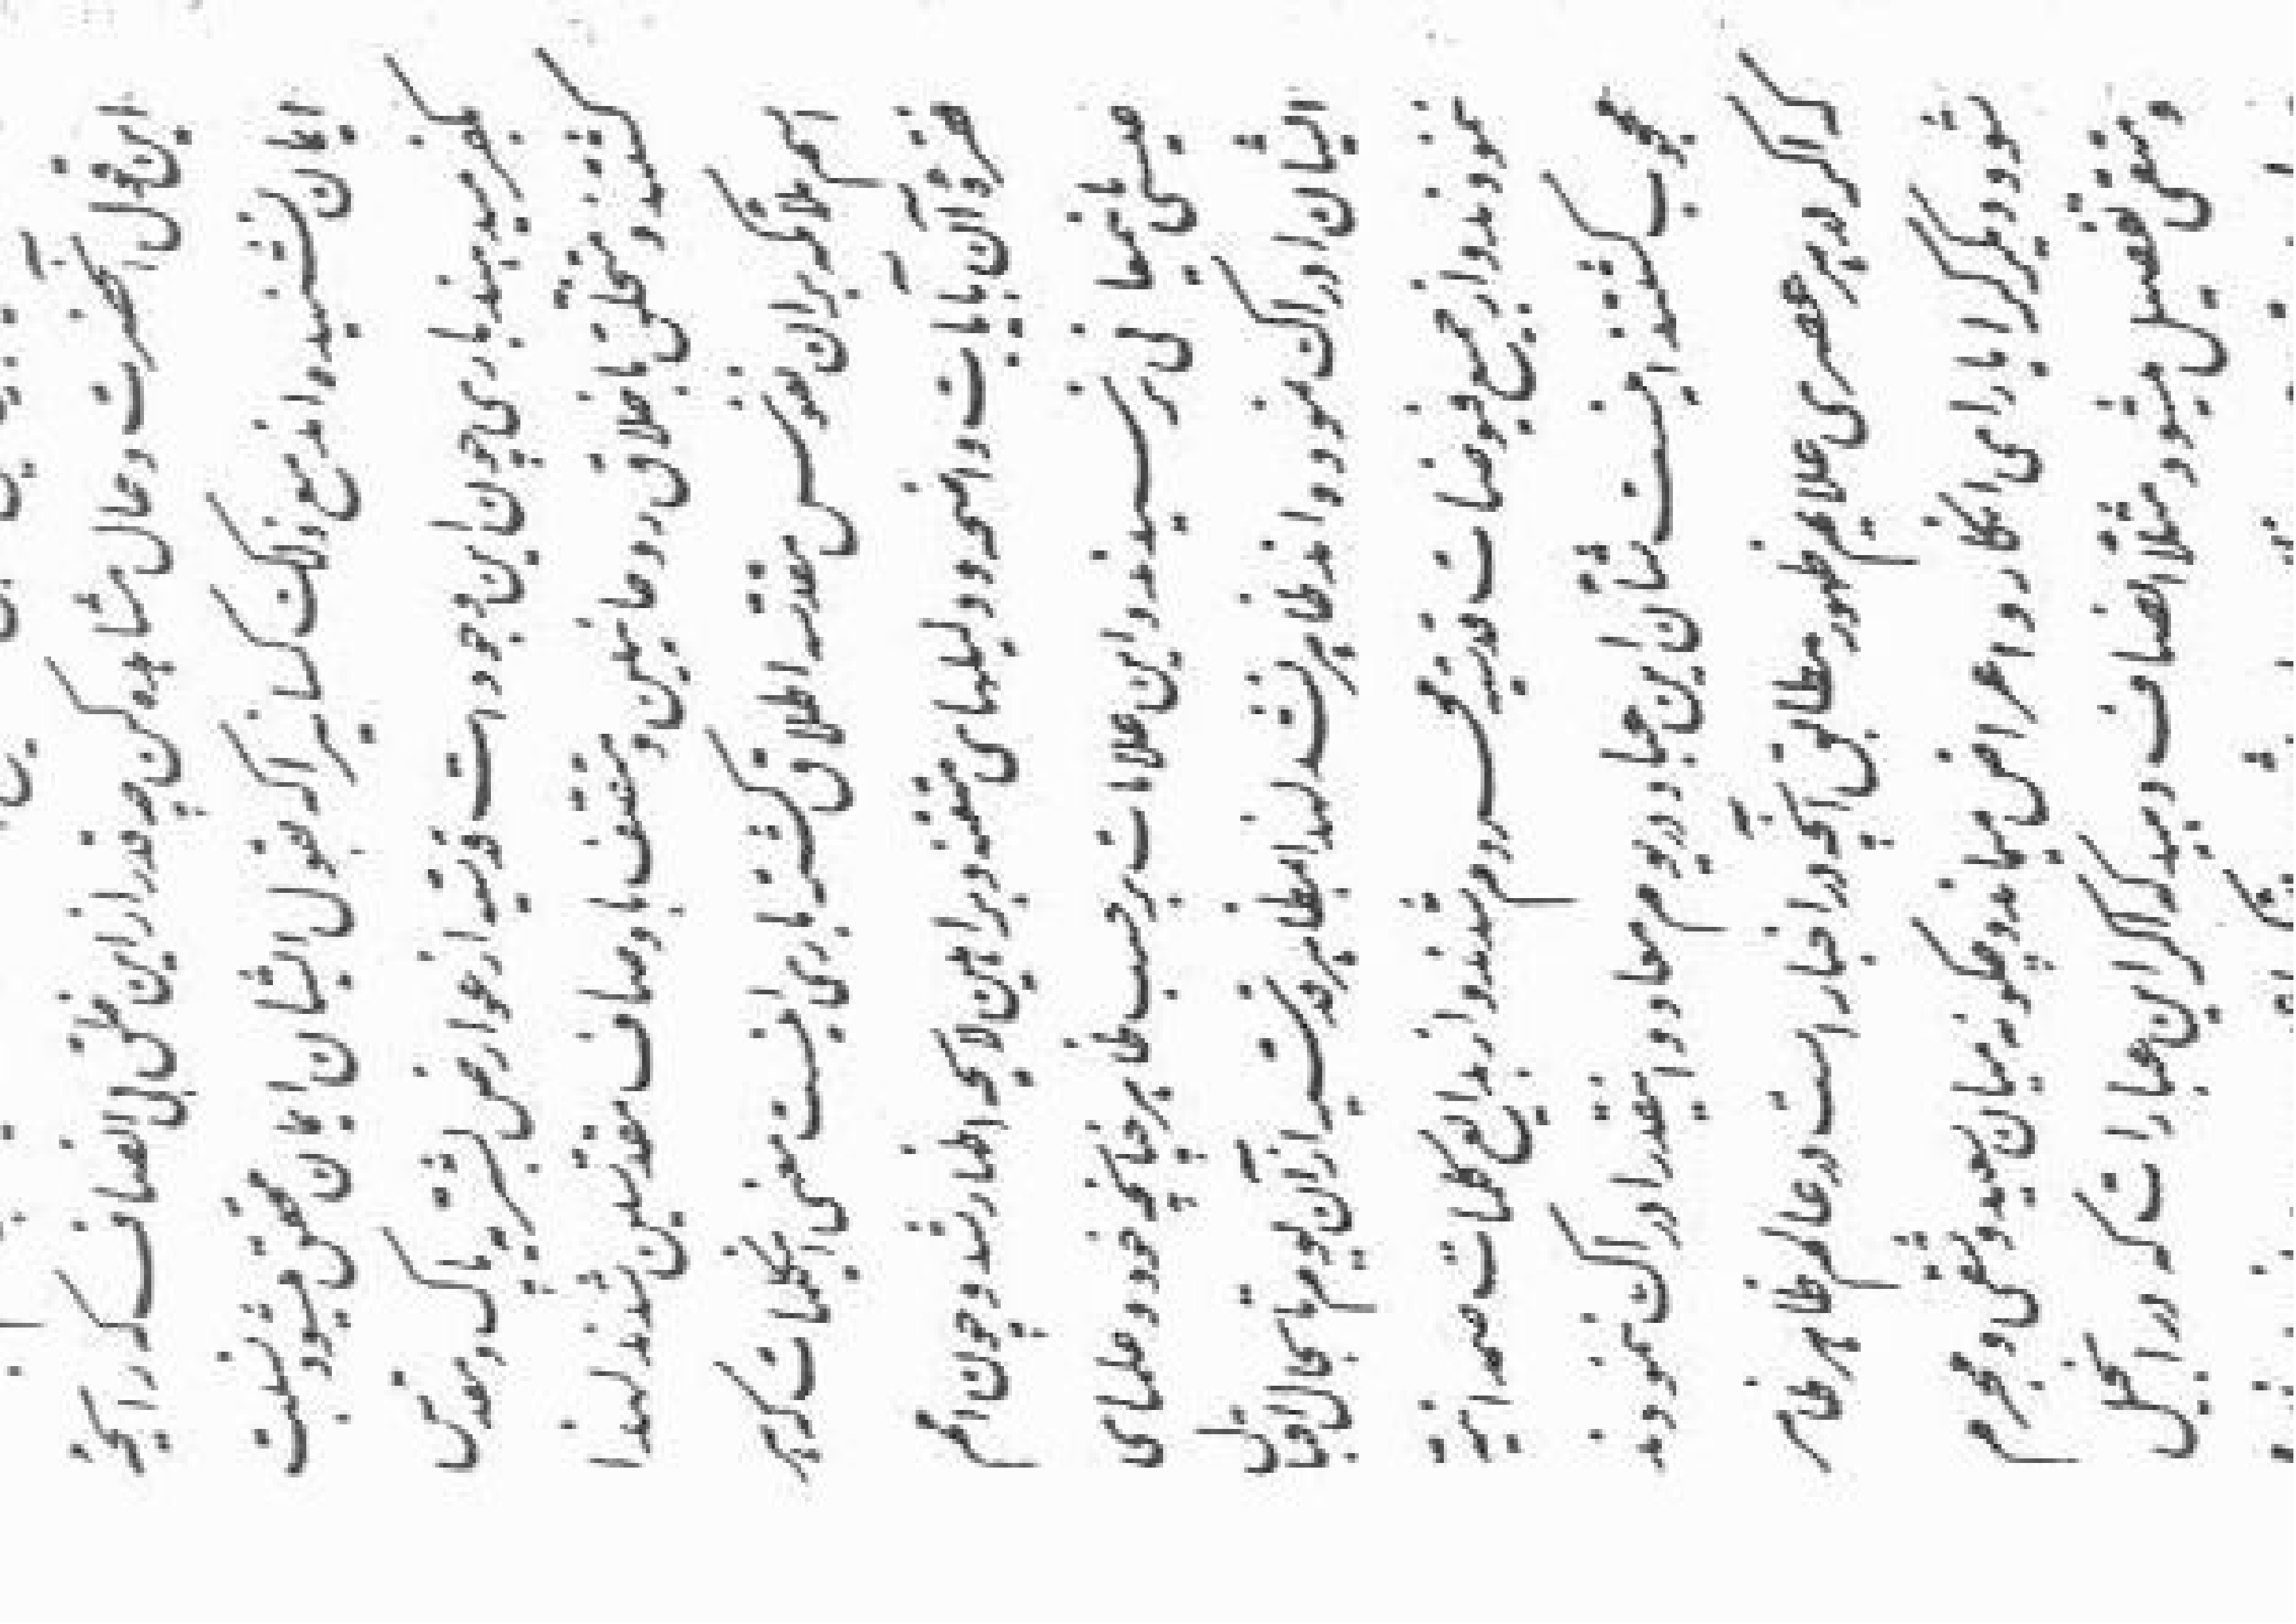 این قول آنحضرت و حال مشاهده کن چه قدر ازین خلق بی انصاف که رائحهٔ
ایمان نشنیده اند مع ذلک کسانیرا که بقول ایشان ایمان محقق میشود نسبت
بکفر میدهند باری چون این وجودات قدسیه از عوارض بشریه پاک و مقدس
گشتند و متخلق باخلاق روحانیین و متصف باوصاف مقدسین شدند لهذا
اسم ملائکه بر آن نفوس مقدسه اطلاق گشته باری اینست معنی این کلمات که هر
فقره آن بآیات واضحه و دلیلهای متقنه و براهین لائحه اظهار شد و چون امم
عیسی باین معانی نرسیدند و این علامات بر حسب ظاهر چنانچه خود و علمای
ایشان ادراک نموده اند ظاهر نشد لهذا بمظاهر قدسیه از آن یوم تا بحال اقبال
ننمودند و از جمیع فیوضات قدسیه محروم شدند و از بدایع کلمات صمدانیه
محجوب گشتند اینست شأن این عباد در یوم معاد و اینقدر ادراک ننمودند
که اگر در هر عصری علائم ظهور مطابق آنچه در اخبار است در عالم ظاهر ظاهر
شود دیگر که را یارای انکار و اعراض میماند و چگونه میان سعید و شقی و مجرم
و متقی تفصیل میشود مثلا انصاف دهید که اگر این عبارات که در انجیل